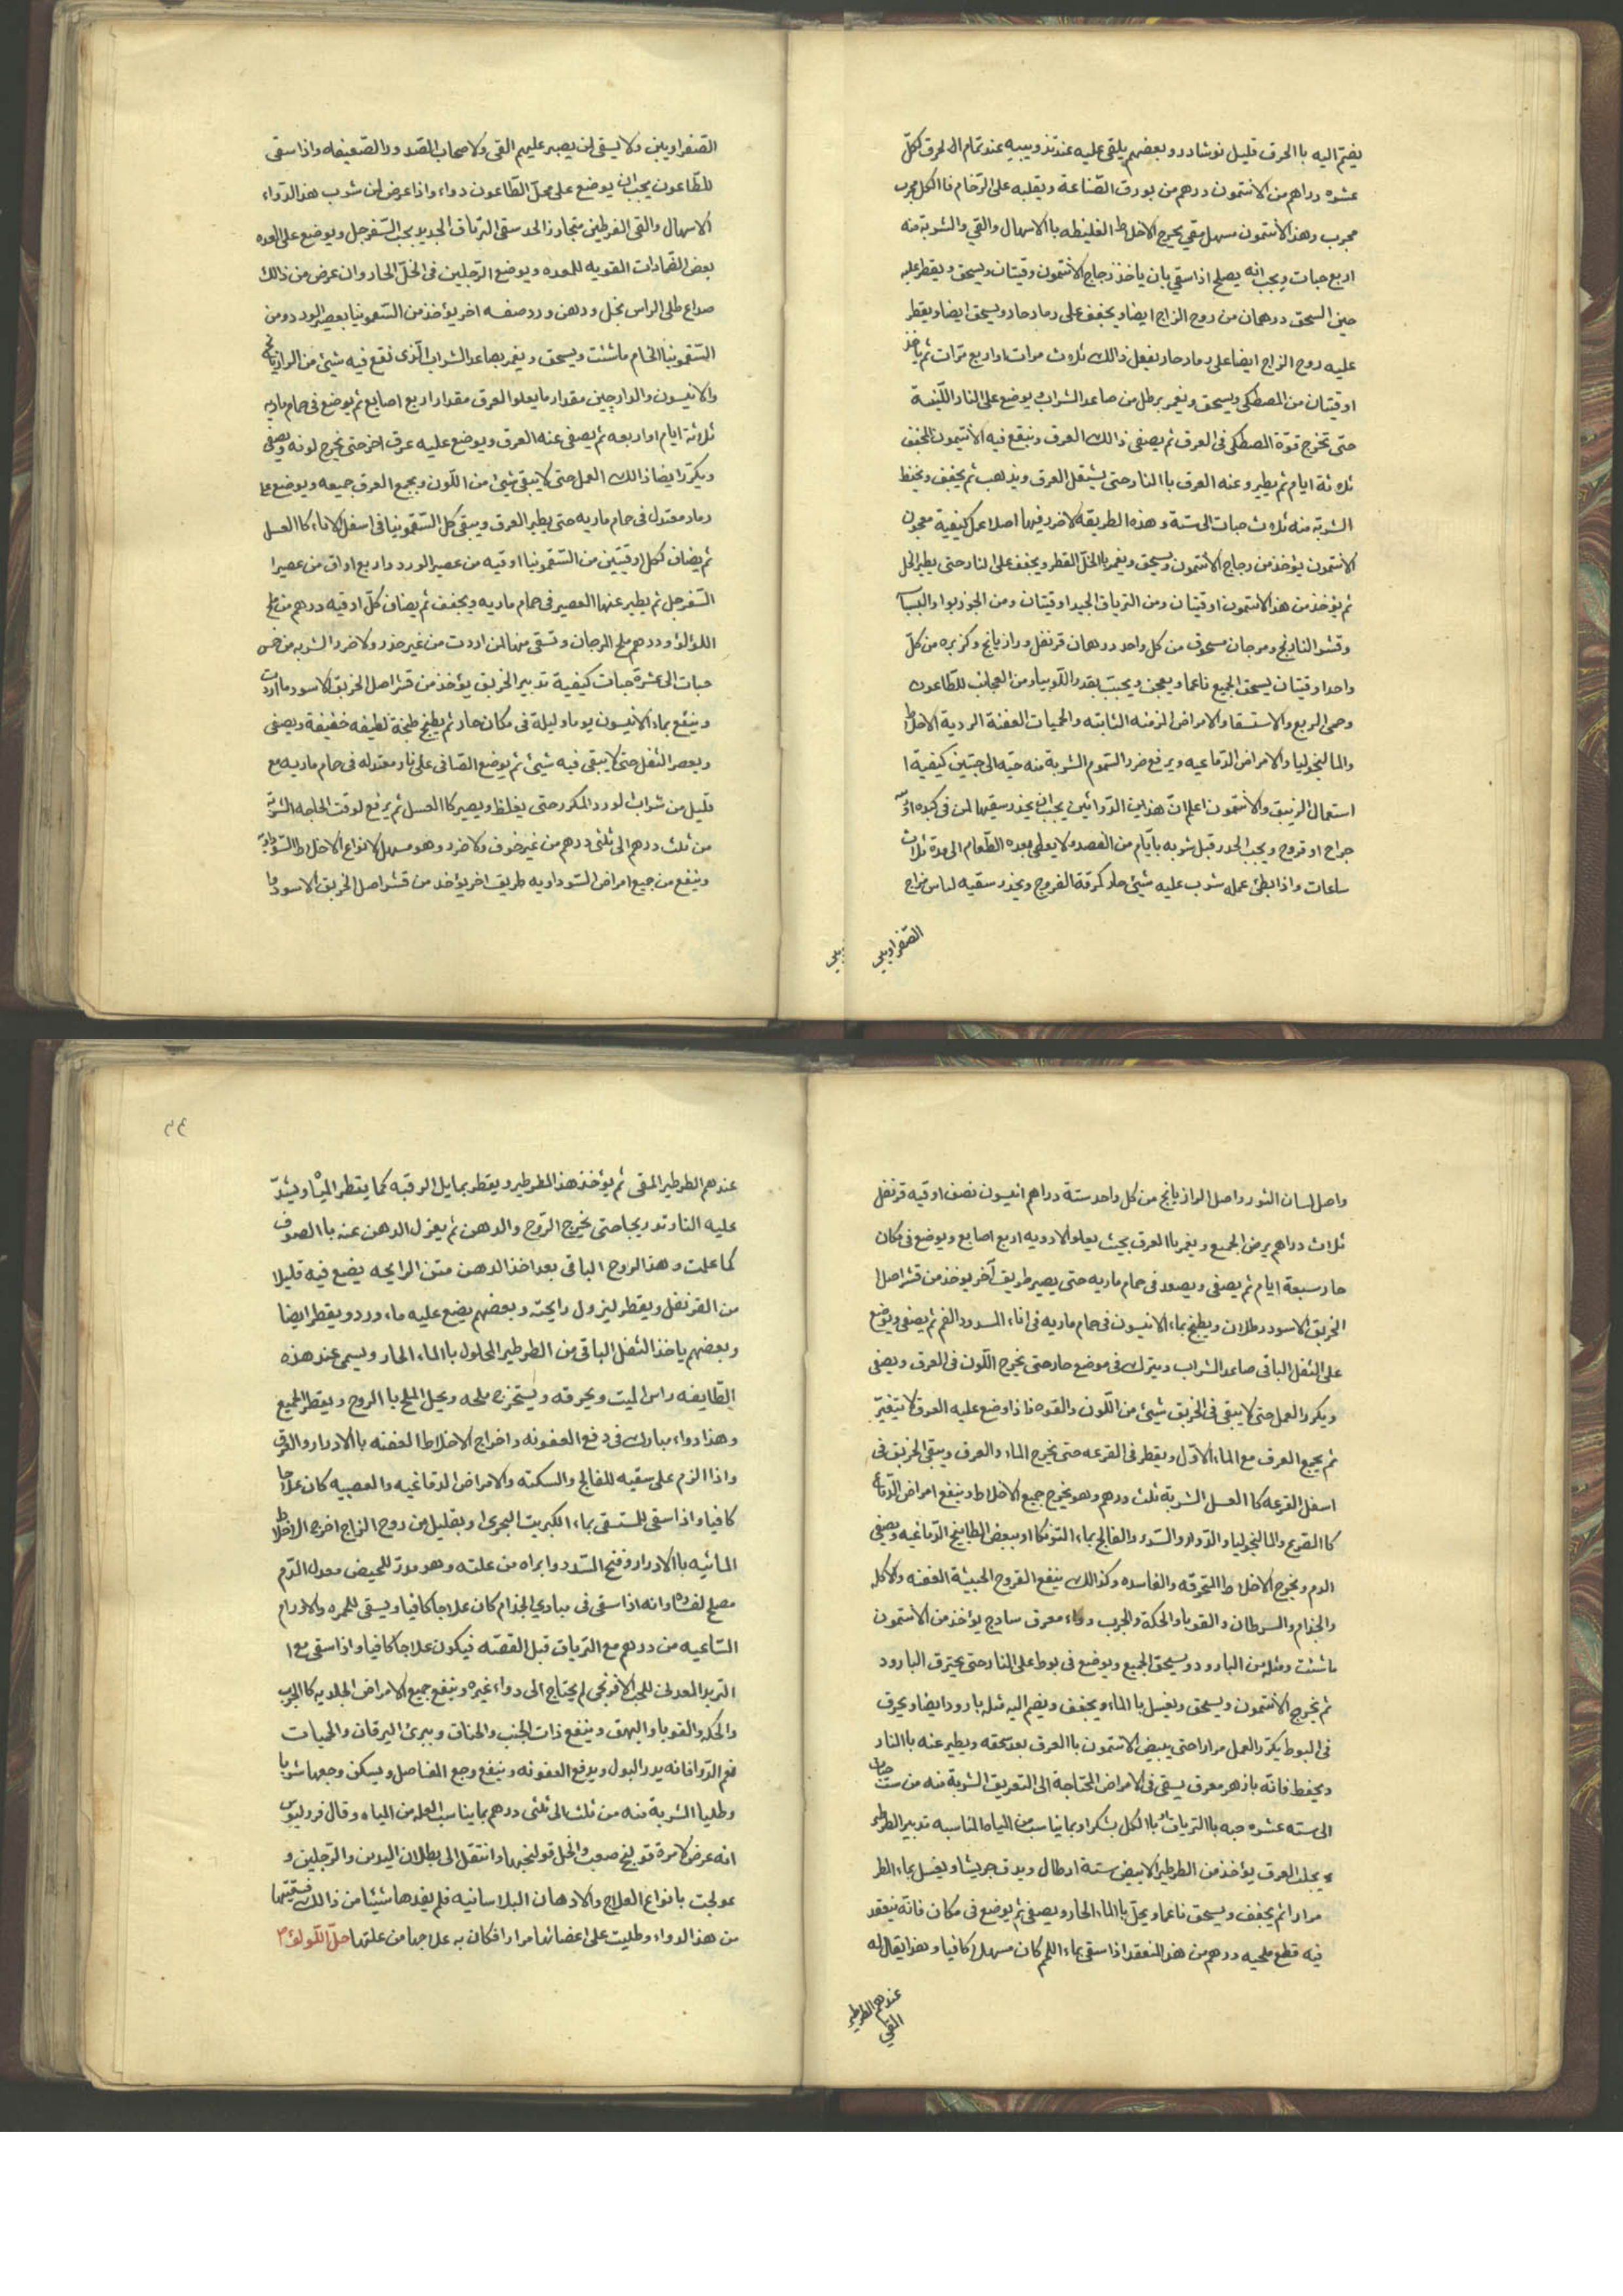 يضم اليه باالحرق قليل نوشادر وبعضهم يلقى عليه عند تذويبه عند تمام الحرق لكل
عشره دراهم من الانتمون درهم من بورق الصناعة ويقلبه على الرخام فاالكل مجرب
مجرب وهذا الأنتمون مسهل مقي يخرج الاخلاط الغليظه باالاسهال والقي والشوبة منه
اربع حبات ويجب انه يصلح اذا سقي بان ياخذ زجاج الأنتمون وقيتان ويسحق ويقطر عليه
حين السحق درهمان من روح الزاج ايضا ويجفف على رماد حار ويسحق ايضا ويقطر
عليه روح الزاج ايضا على رماد حار يفعل ذالك ثلاث مرات او اربع مرات ثم ياخذ
اوقيتان من المصطكى ويسحق ويغمر برطل من صاعد الشراب ويوضع على النار اللينة
حتى تخرج قوة المصطكى فى العرق ثم يصفى ذالك العرق وينقع فيه الأنتيمون المجفف
ثلاثة ايام ثم يطير وعنه العرق باالنار حتى يشتعل العرق ويذهب ثم يجفف ويحفظ
الشربة منه ثلاث حبات الى ستة وهذه الطريقه لا ضرر فيها اصلا عمل كيفية معجون
الانتمون يؤخذ من زجاج الأنتمون ويسحق ويغمر باالخل المقطر ويجفف على النار حتى يطير الخل
ثم يؤخذ من هذا الانتمون اوقيتان ومن الترياق الجيد اوقيتان ومن الجوزبوا والبسباسه
وقشر النارنج ومرجان مسحوق من كل واحد درهمان قرنفل ورازيانج وكزبره من كل
واحد اوقيتان يسحق الجميع ناعما ويعجن ويحبب بقدر اللوبيا ومن العجائب للطاعون
وحمى الربع والاستسقا والامراض المزمنه الثابته والحميات العفنة الردية الاخلاط
والمالنخوليا والامراض الدماغيه ويرفع ضرر السموم الشربة منه حبه الى حبتين كيفية ا
استعمال الزيبق والأنتمون اعلم ان هذين الدوائين يجب ان يحذر سقيها لمن فى كبده
جراح او قروح ويجب الحذر قبل شربه بأيام من الفصد ولا يعطى بعده الطعام الى مدة ثلاث
ساعات واذا ابطئ عمله شرب عليه شيئ حار كمرقة الفروج ويحذر سقيه لناس مزاج
الصفراويين
الصفراويين ولا يسقى لمن يصبر عليهم القى ولا صحاب الصدور الضعيفه واذا سقى
للطاعون يجب ان يوضع على محل الطاعون دواء واذا عرض لمن شوب هذ الدواء
الاسهال والقى المفرطين متجاوز الحد سقى الترياق الجديد بحب السفرجل ويوضع على المعده
بعض الضمادات المقويه للمعده ويوضع الرجلين فى الخل الحار وان عرض من ذالك
صداع طلى الراس بخل ودهن ورد صفه اخر يؤخذ من السقمونيا بعصير الورد ومن
السقمونيا الخام ماشئت ويسحق ويغمر بصاعد الشراب الذى نقع فيه شيئ من الرازيانج
والانيسون والدارچين مقدار مايعلوا العرق مقدار اربع اصابع ثم يوضع فى حمام ماريه
ثلاثة ايام او اربعه ثم يصفى عنه العرق ويوضع عليه عرق اخر حتى يخرج لونه ويصفى
ويكرر ايضا ذالك العمل حتى لا يبقى شئ من اللون ويجمع العرق جميعه ويوضع على
رماد معتدل فى حمام ماريه حتى يطير العرق ويبقى كل السقمونيا فى اسفل الاناء كاالعسل
ثم يضاف لكل اوقيتين من السقمونيا اوقيه من عصير الورد واربع اواق من عصير ا
السفرجل ثم يطير عنها العصير فى حمام ماريه ويجفف ثم يضاف كل اوقيه درهم من ملح
اللؤلؤ ودرهم ملح المرجان وتسقى منها لمن اردت من غير حذر ولا ضرر الشربه من خمس
حبات الى عشرة حبات كيفية تدبير الخربق يؤخذ من قشر اصل الخربق الاسود ما اردت
وينقع بماء الانيسون يوما وليلة فى مكان حار ثم يطبخ طبخة لطيفه خفيفة ويصفى
ويعصر الثفل حتى لا يبقى فيه شيئ ثم يوضع الصافى على نار معتدله فى حمام ماريه مع
قليل من شراب الورد المكرر حتى يغلظ ويصير كاالعسل ثم يرفع لوقت الحاجه الشربة
من ثلث درهم الى ثلثى درهم من غير خوف ولا ضرر وهو مسهل لانواع الاخلاط السوداوية
وينفع من جميع امراض السوداويه طريق اخر يؤخذ من قشر اصل الخربق الاسود
واصل لسان الثور واصل الرازيانج من كل واحد ستة دراهم انيسون نصف اوقيه قرنفل
ثلاث دراهم يرض الجميع ويغمر باالعرق بحيث يعلو الادويه اربع اصابع ويوضع فى مكان
حار سبعة ايام ثم يصفى ويصعد فى حمام ماريه حتى يصير طريق آخر يوخذ من قشر اصل ا
الخربق الاسود رطلان ويطبخ بماء الانيسون فى حمام ماريه فى اناء المسدود الفم ثم يصفى ويوضع
على الثفل الباقى صاعد الشراب ويترك فى موضع حار حتى يخرج اللون فى العرق ويصفى
ويكرر العمل حتى لا يبقى فى الخربق شيئ من اللون والقوه فاذا وضع عليه العرق لا يتغير
ثم يجمع العرق مع الماء الاول ويقطر فى القرعه حتى يخرج الماء والعرق ويبقى الخربق فى
اسفل القرعه كاالعسل الشربة ثلث درهم وهو يخرج جميع الاخلاط وينفع امراض الدماغ
كاالصرع والمالنخوليا والدوار والسدر والفالج بماء التوتكا او ببعض المطابيخ الدماغيه ويصفى
الدم ويخرج الاخلاط المتحرقه والفاسده وكذالك ينفع القروح الخبيثة العفنه والاكله
والجذام والسرطان والقوبا والحكة والجرب دواء معرف ساذج يؤخذ من الأنتمون
ماشئت ومثله من البارود ويسحق الجميع ويوضع فى بوط على النار حتى يحترق البارود
ثم يخرج الأنتمون ويسحق ويغسل باالماء ويجفف ويضم اليه مثله بارود ايضا ويحرق
فى البوط يكرر العمل مرارا حتى يبيض الانتمون باالعرق بعد سحقه ويطير عنه باالنار
ويحفظ فانه بازهر معرق يسقى فى الامراض المحتاجة الى التعريق الشربة منه من ست حبات
الى سته عشره حبه باالترياق او باالكل بشكر او بما يناسب من المياه المناسبه تدبير الطرطير
يجلب العرق يؤخذ من الطرطير الابيض ستة ارطال ويدق جريشا ويغسل بماء الطر
مرارا ثم يجفف ويسحق ناعما ويحل باالماء الحار ويصفى ثم يوضع فى مكان فانه ينعقد
فيه قطع ملحيه درهم من هذ المنعقد اذا سقى بماء اللحم كان مسهلا كافيا وهذا يقال له
عندهم الطرطير
المقى
٣٤
عندهم الطرطير المقى ثم يؤخذ هذ الطرطير ويقطر بمايل الرقبه كما يقطر المياه ويشد
عليه النار تدريجا حتى يخرج الروح والدهن ثم يعزل الدهن عنه باالصوف
كما علمت وهذ الروح الباقى بعد اخذ الدهن منتن الرايحه يضع فيه قليلا
من القرنفل ويقطر ليزول رايحته وبعضهم يضع عليه ماء ورد ويقطر ايضا
وبعضهم ياخذ الثفل الباقى من الطرطير المحلول باالماء الحار ويسمى عند هذه
الطايفه راس الميت ويحرقه ويستخرج ملحه ويحل الملح باالروح ويقطر الجميع
وهذا دواء مبارك فى دفع العفونه واخراج الاخلاط العفنه باالادرار والعرق
واذا الزم على سقيه للفالج والسكته والامراض الدماغيه والعصبيه كان علاجا
كافيا واذا سقى للمستسقى بماء الكبريت البحرى او بقليل من روح الزاج اخرج الاخلاط
المائيه باالادرار وفتح السدد وابراه من علته وهو مدر للحيض معدل الدم
مصلح لفساده وانه اذا سقى فى مبادى الجذام كان علاجا كافيا ويسقى للحمره والاورام
الساعيه من درهم مع الترياق قبل الفصد فيكون علاجا كافيا واذا سقى مع ا
التربد المعدنى للحب الافرنجى لم يحتاج الى دواء غيره وينفع جميع الامراض الجلديه كاالجرب
والحكه والقوبا والبهق وينفع ذات الجنب والخناق ويبرئ اليرقان والحميات
نعم الدوا فانه يدر البول ويدفع العفونه وينفع وجع المفاصل ويسكن وجعها شربا
وطليا الشربة منه من ثلث الى ثلثى درهم بما يناسب العله من المياه وقال قروليوس
انه عرض لامرة قولنج صعب وانحل قولنجها وانتقل الى بطلان اليدين والرجلين و
عولجت بانواع العلاج والادهان البلاسانيه فلم يفدها شيئا من ذالك فسقيتها
من هذ الدواء وطليت على اعضائها مرارا فكان به علاجها من علتها حل اللولؤ